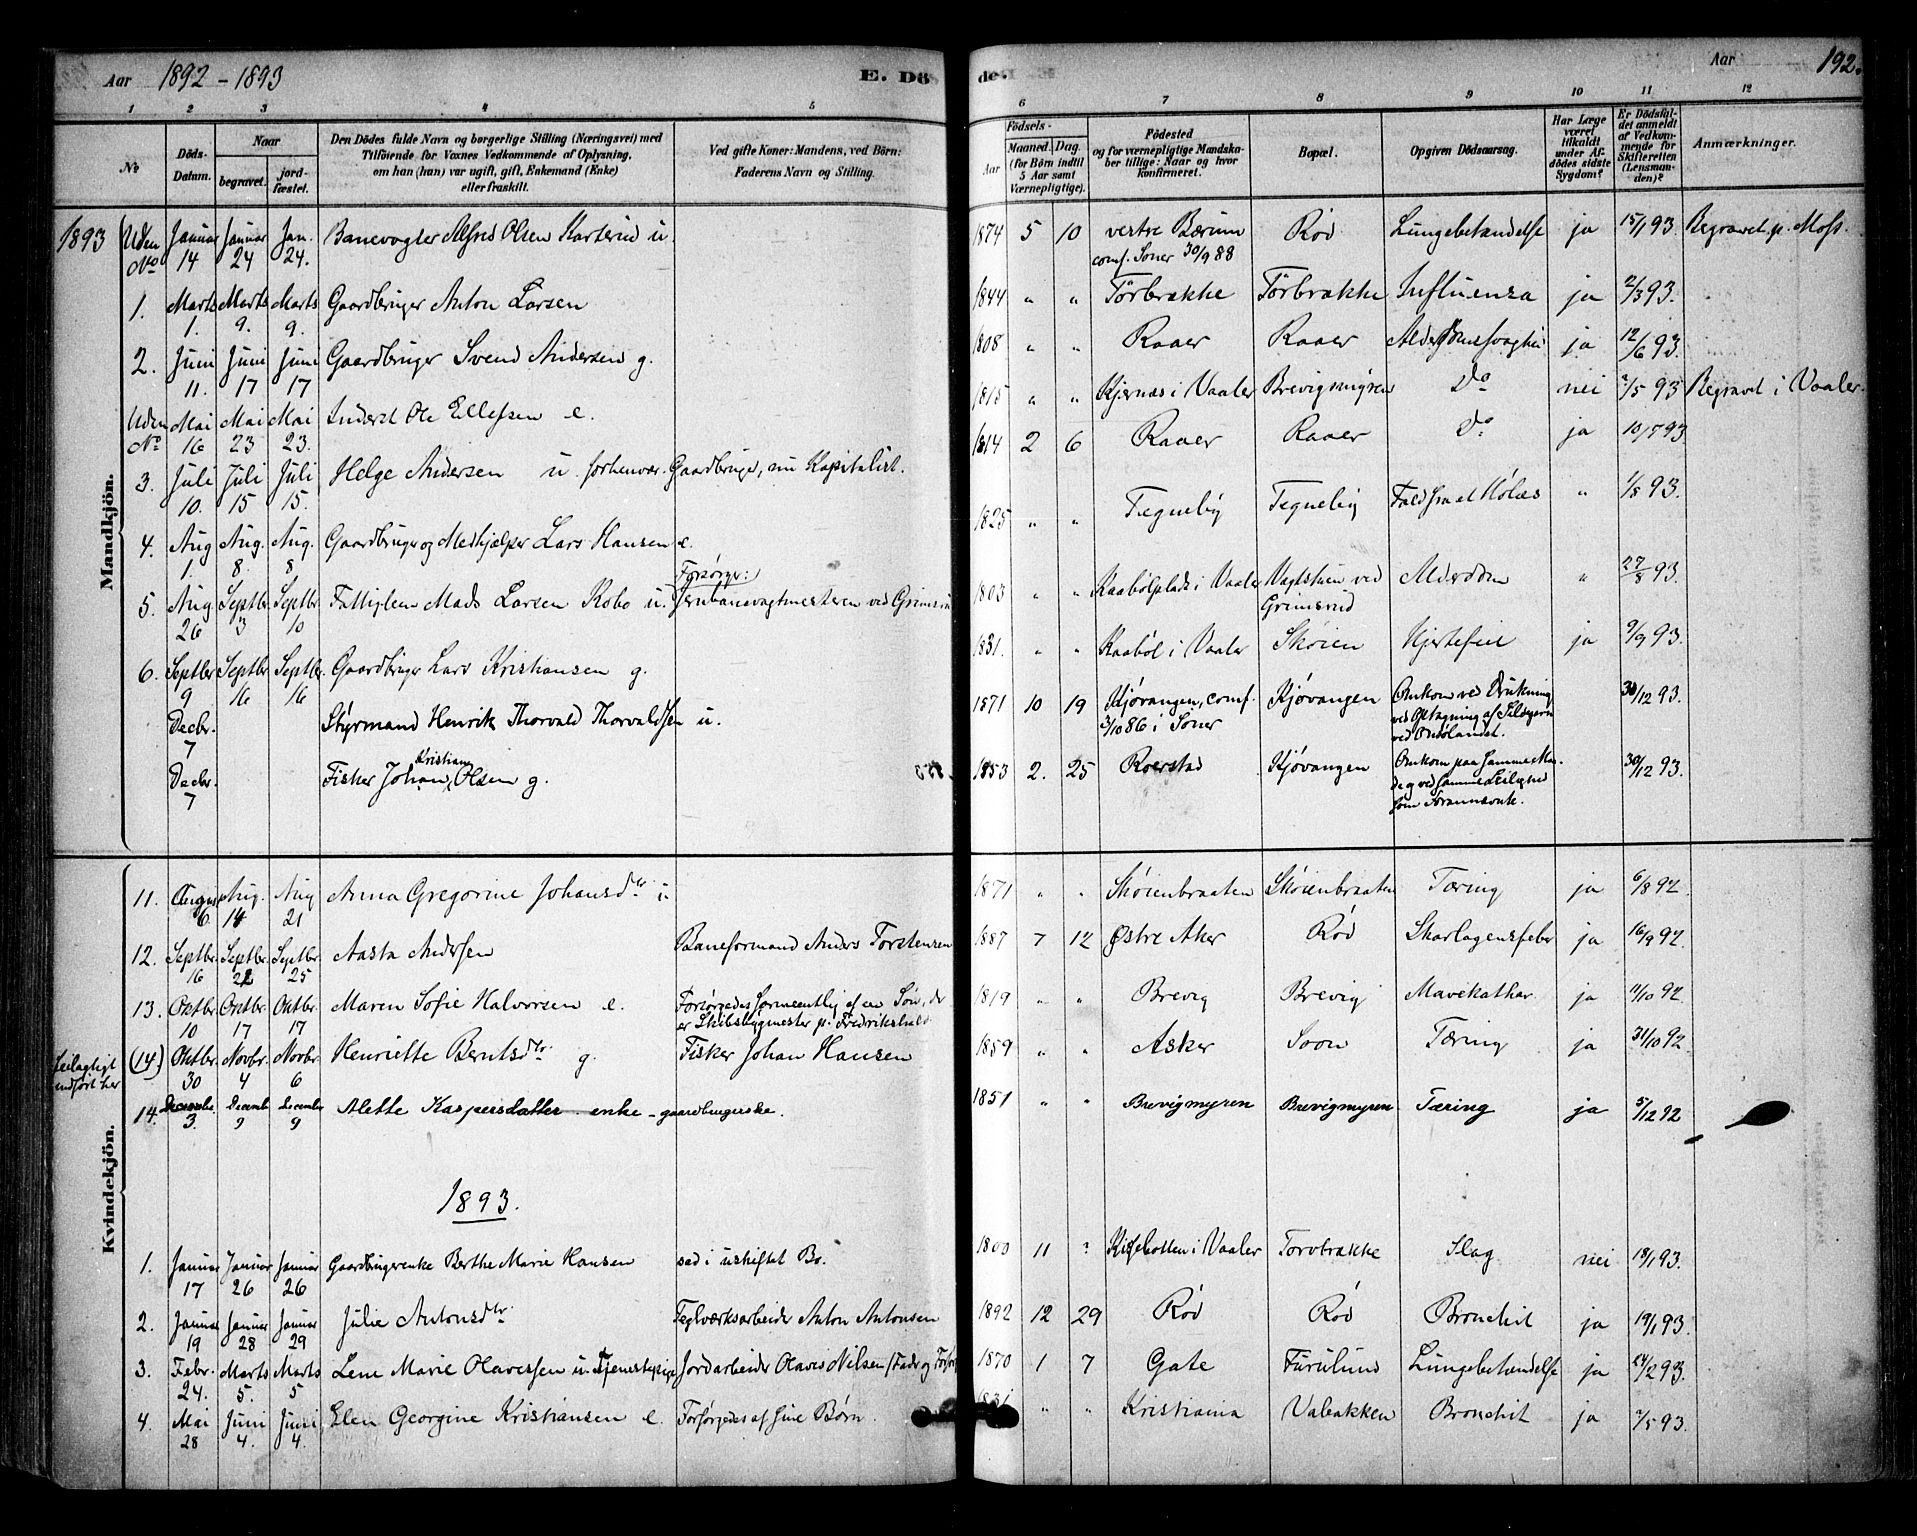 Aar 1892 - 1893 E. Dö
de. Aar 192.
1 2 3 4 5
6 7 8 9 10 11 12
No Döds-Datum. Naar begravet. jord-fæstet. Den Dödes fulde Navn og borgerlige Stilling (Næringsvei) med Tilföiende for Voxnes Vedkommende af Oplysning, om han (hun) var ugift, gift, Enkemand (Enke) eller fraskilt. Ved gifte Koner: Mandens, ved Börn: Faderens Navn og Stilling.
Födsels- Aar Maaned. Dag. (for Börn indtil 5 Aar samt Værnepligtige). Födested og for værnepligtige Mandskaber tillige: Naar og hvor konfirmeret. Bopæl. Opgiven Dödsaarsag. Har Læge været tilkaldt under Afdödes sidste Sygdom? Er Dödsfaldet anmeldt af Vedkommende for Skifteretten (Lensmanden)? Anmærkninger.
Mandkjön.
1893 Uden No Januar 14 Januar 24 Jan. 24. Banevogter Alfred Olsen Karterud u. 1874 5 10 vestre Bærum conf. Soner 30/9 88 Rød Lungebetændelse ja 15/1 93. Begravet p. Moss.
1. Marts 1. Marts 9. Marts 9. Gaardbruger Anton Larsen 1844 " " Törbrække Törbrække Influenza ja 2/3 93.
2. Juni 11. Juni 17 Juni 17 Gaardbruger Svend Andersen g. 1808 " " Raaer Raaer ja 12/6 93
Uden No Mai 16 Mai 23 Mai 23. Inderst Ole Ellefsen e. 1815 " " Kjernæs i Vaaler Brevigmyren Do nei /5 93 Begravet i Vaaler.
3. Juli 10. Juli 15 Juli 15. Helge Andersen u. forhenvær. Gaardbruger, nu Kapitalist. 1814 2 6 Raaer Raaer Do ja 10/7 93
4. Aug 1. Aug. 8. Aug. 8 Gaardbruger og Medhjælper Lars Hansen e. 1825 " " Tegneby Tegneby Fald fra et Hølæs " 1/8 93.
5. Aug 26 Septbr. 3 Septbr. 10 Fattiglem Mads Larsen Robo u. Forsörger: Jernbanevagtmesteren ved Grimsrud 1803 " " Kaabölplads i Vaaler Vagtstuen ved Grimsrud Alderdom " 27/8 93.
6. Septbr 9 Septbr. 16 Septbr. 16 Gaardbruger Lars Kristiansen g. 1831. " " Kaaböl i Vaaler Skøien Hjertefeil ja 9/9 93.
Decbr. 7 Styrmand Henrik Thorvald Thorvaldsen u. 1871 10 19 Kjövangen, conf. 3/10 86 i Soner Kjövangen Omkom ved Drukning ved Optagning af Sildegarn 30/12 93.
Decbr. 7 Fisker Johan Kristian Olsen g. 1853 2. 25 Roerstad Kjövangen Omkom paa samme Maade og ved samme Leilighed som Forannævnte. 30/12 93.
Kvindekjön.
11. August 6. Aug. 14 Aug 21 Anna Gregorine Johansdtr u. 1871 " " Skøienbraaten Skøienbraaten Tæring ja 6/8 92.
12. Septbr. 16 Septbr. 22 Septbr. 25 Aasta Andersen Baneformand Anders Torstensen 1887 7 12 Østre Aker Rød Skarlagensfeber ja 16/9 92.
13. Oktbr. 10 Oktbr. 17 Oktbr. 17 Maren Sofie Halvorsen e. Forsörgedes formentlig af en Sön, der er Skibsbygmester p. Fredrikshald 1819 " " Brevig Brevig Mavekathar ja 11/10 92
feilagtigt indfört her (14) Oktbr. 30 Novbr. 4 Novbr. 6 Henriette Berntsdtr g. Fisker Johan Hansen 1859 " " Asker Soon Tæring ja 31/10 92.
14. December 3. Decemb 9 December 9 Alette Kaspersdatter enke - gaardbrugerske. 1851 " " Brevigmyren Brevigmyren Tæring ja 5/12 92
1893.
1. Januar 17 Januar 26 Januar 26 Gaardbrugerenke Berthe Marie Hansen sad i uskiftet Bo. 1800 11 ? i Vaaler Torvbrække Slag nei 18/1 93.
2. Januar 19 Januar 28 Januar 29 Julie Antonsdtr. Teglværksarbeider Anton Antonsen 1892 12 29 Rød Rød Bronchit ja 19/1 93.
3. Febr. 24. Marts 5. Marts 5 Lene Marie Olavessen u. Tjenestepige Jordarbeider Olaves Nilsen (Fader og Forsör 1870 1 7 Gate Furulund Lungebetændelse ja 24/2 93.
4. Mai 28 Juni 4. Juni 4. Elen Georgine Kristiansen e. Forsörgedes af sine Börn 1831 " " Kristiania Valbakken Bronchit ja /5 93.